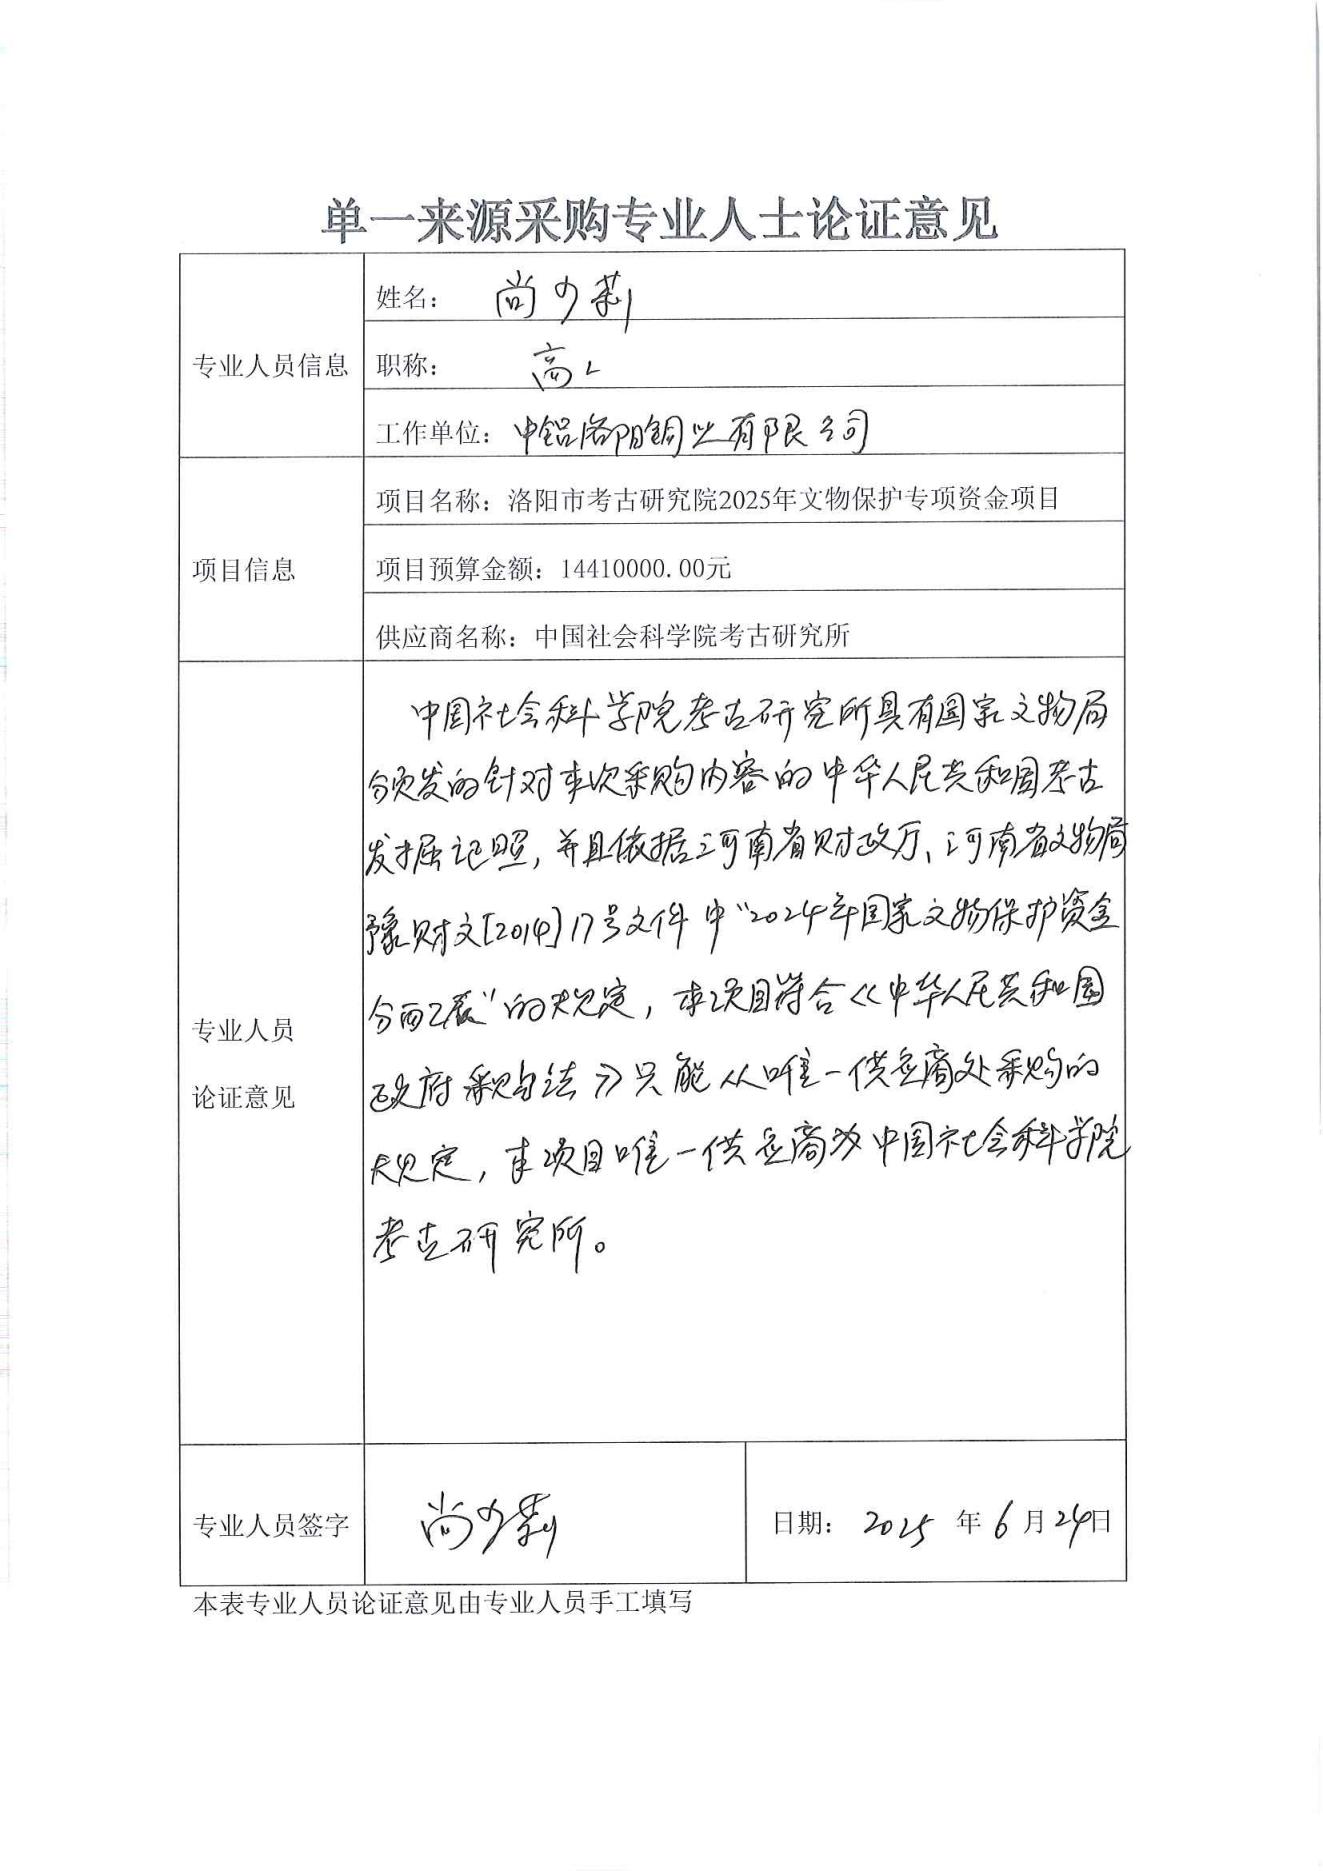 单一来源采购专业人士论证意见
专业人员信息
姓名： 尚少莉
职称： 高工
工作单位：中铝洛阳铜业有限公司
项目信息
项目名称：洛阳市考古研究院2025年文物保护专项资金项目
项目预算金额：14410000.00元
供应商名称：中国社会科学院考古研究所
专业人员
论证意见
中国社会科学院考古研究所具有国家文物局
颁发的针对本次采购内容的中华人民共和国考古
发掘证照，并且依据河南省财政厅、河南省文物局
豫财文[2014]17号文件中“2024年国家文物保护资金
分配表”的规定，本项目符合《中华人民共和国
政府采购法》只能从唯一供应商处采购的
规定，本项目唯一供应商为中国社会科学院
考古研究所。
专业人员签字
尚少莉
日期： 2025 年 6 月 24 日
本表专业人员论证意见由专业人员手工填写